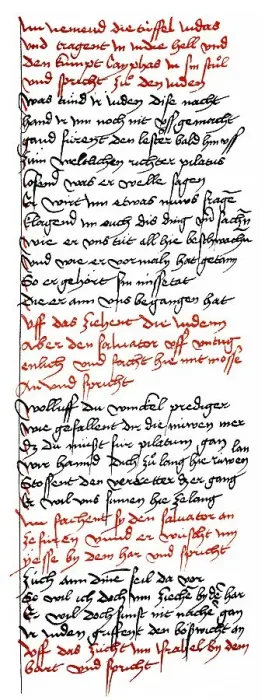 Nun nemend die tüffel Judas
und tragent in in die hell und
den kumpt Cayphas in sin stůl
und spricht zů den Juden
Was tůnd ir Juden dise nacht
hand ir nun noch nit uff gemacht
gand fürent den laster bald hin uff
zům weltlichen richter pilatus
losend was er welle sagen
Er wirt inn etwas nüws fragen
klagend im ouch dis ding und sachen
wie er uns tüt all hie beschwachen
und wie er vormaln hat getann
So er gehört sin missetat
die er ann uns begangen hat
Uff das ziehent die Juden
Aber den saluator uff
und facht hie mit mosse
an und spricht
Wolluff du winckel prediger
wie gefallent dir die nüwen mer
dz du müst für pilatum gan
wir hannd doch zů lang hie
Stossent den verretter
Er wil uns sinnen hie ze lang
Nun fachent sy den saluator an
ze füren unnd er wüscht im
yesse by dem har und spricht
Züch ann dine seil da vor
So wil ich doch inn ziechen by dem har
Er wil doch sunst nit nachen gan
ir Juden griffent den böswicht an
Uff das zücht inn Israhel by dem
bart und spricht